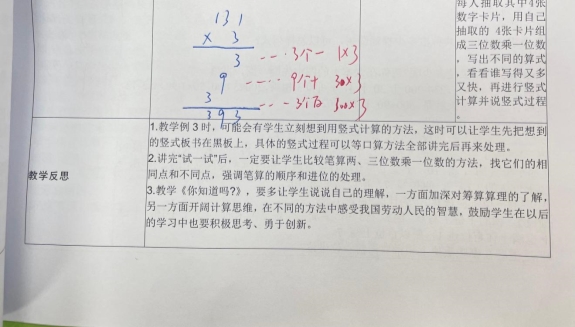 131
× 3
3 ---- 3个一 1×3
9 ---- 9个十 30×3
3 ---- 3个百 300×3
393
每人抽取其中4张
数字卡片，用自己
抽取的 4张卡片组
成三位数乘一位数
，写出不同的算式
，看看谁写得又多
又快，再进行竖式
计算并说竖式过程
。
教学反思
1.教学例 3 时，可能会有学生立刻想到用竖式计算的方法，这时可以让学生先把想到
的竖式板书在黑板上，具体的竖式过程可以等口算方法全部讲完后再来处理。
2.讲完“试一试”后，一定要让学生比较笔算两、三位数乘一位数的方法，找它们的相
同点和不同点，强调笔算的顺序和进位的处理。
3.教学《你知道吗?》，要多让学生说说自己的理解，一方面加深对筹算算理的了解，
另一方面开阔计算思维，在不同的方法中感受我国劳动人民的智慧，鼓励学生在以后
的学习中也要积极思考、勇于创新。